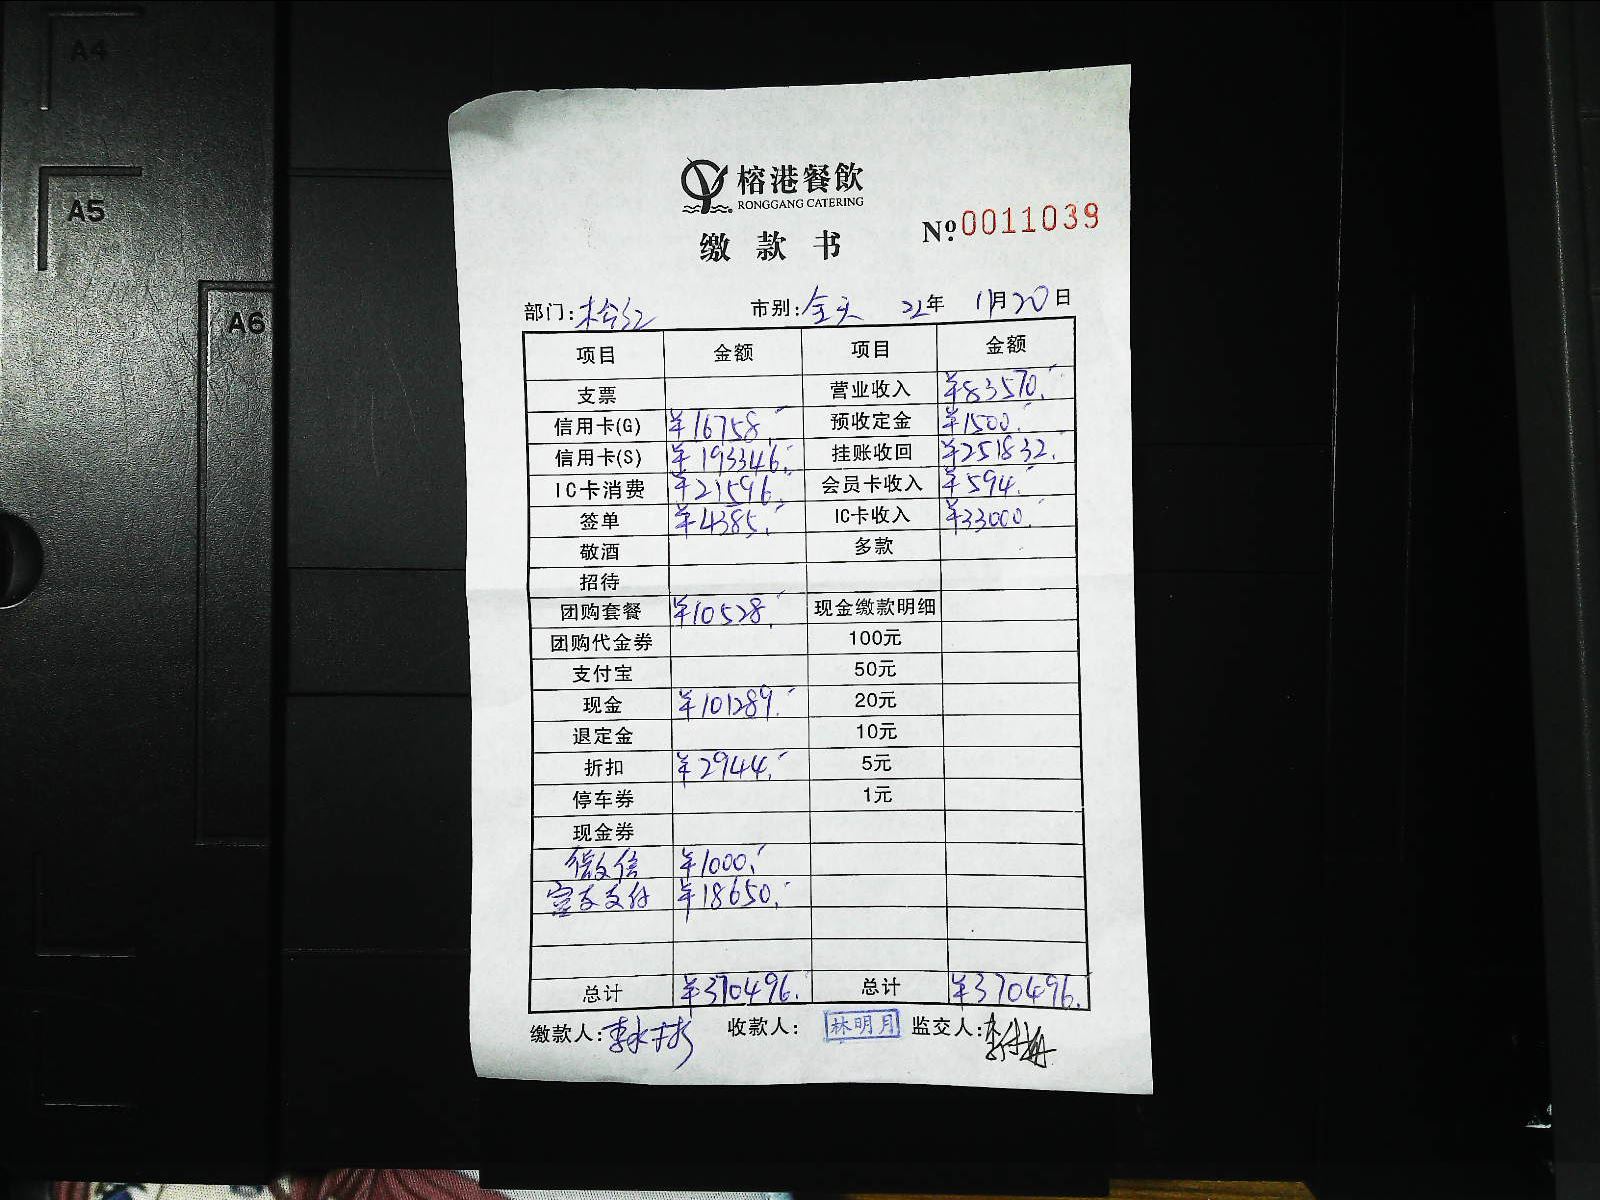 A4
A5
A6
榕港餐飲
RONGGANG CATERING
缴款书
№ 0011039
部门: 市别:全天 22年 11月20日
项目 金额 项目 金额
支票 营业收入 ¥83570.-
信用卡(G) ¥16758.- 预收定金 ¥1500.-
信用卡(S) ¥193346.- 挂账收回 ¥251832.-
IC卡消费 ¥21596.- 会员卡收入 ¥594.-
签单 ¥4385.- IC卡收入 ¥33000.-
敬酒 多款
招待
团购套餐 ¥10528.- 现金缴款明细
团购代金券 100元
支付宝 50元
现金 ¥101289.- 20元
退定金 10元
折扣 ¥2944.- 5元
停车券 1元
现金券
微信 ¥1000.-
支付 ¥18650.-
总计 ¥370496.- 总计 ¥370496.-
缴款人: 收款人: 林明月 监交人: